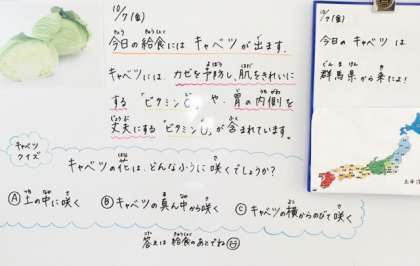 10/7(金)
今日の給食には キャベツが 出ます。
キャベツには、カゼを予防し、肌をきれいに
する「ビタミンC」や、胃の内側を
丈夫にする「ビタミンU」が 含まれています。
キャベツ
クイズ
キャベツの花は、どんなふうに 咲くでしょうか?
Ⓐ 土の中に 咲く Ⓑ キャベツの 真ん中から 咲く Ⓒ キャベツの横からのびて 咲く
答えは 給食の あとでね
10/7(金)
今日の キャベツ は
群馬県から 来たよ!